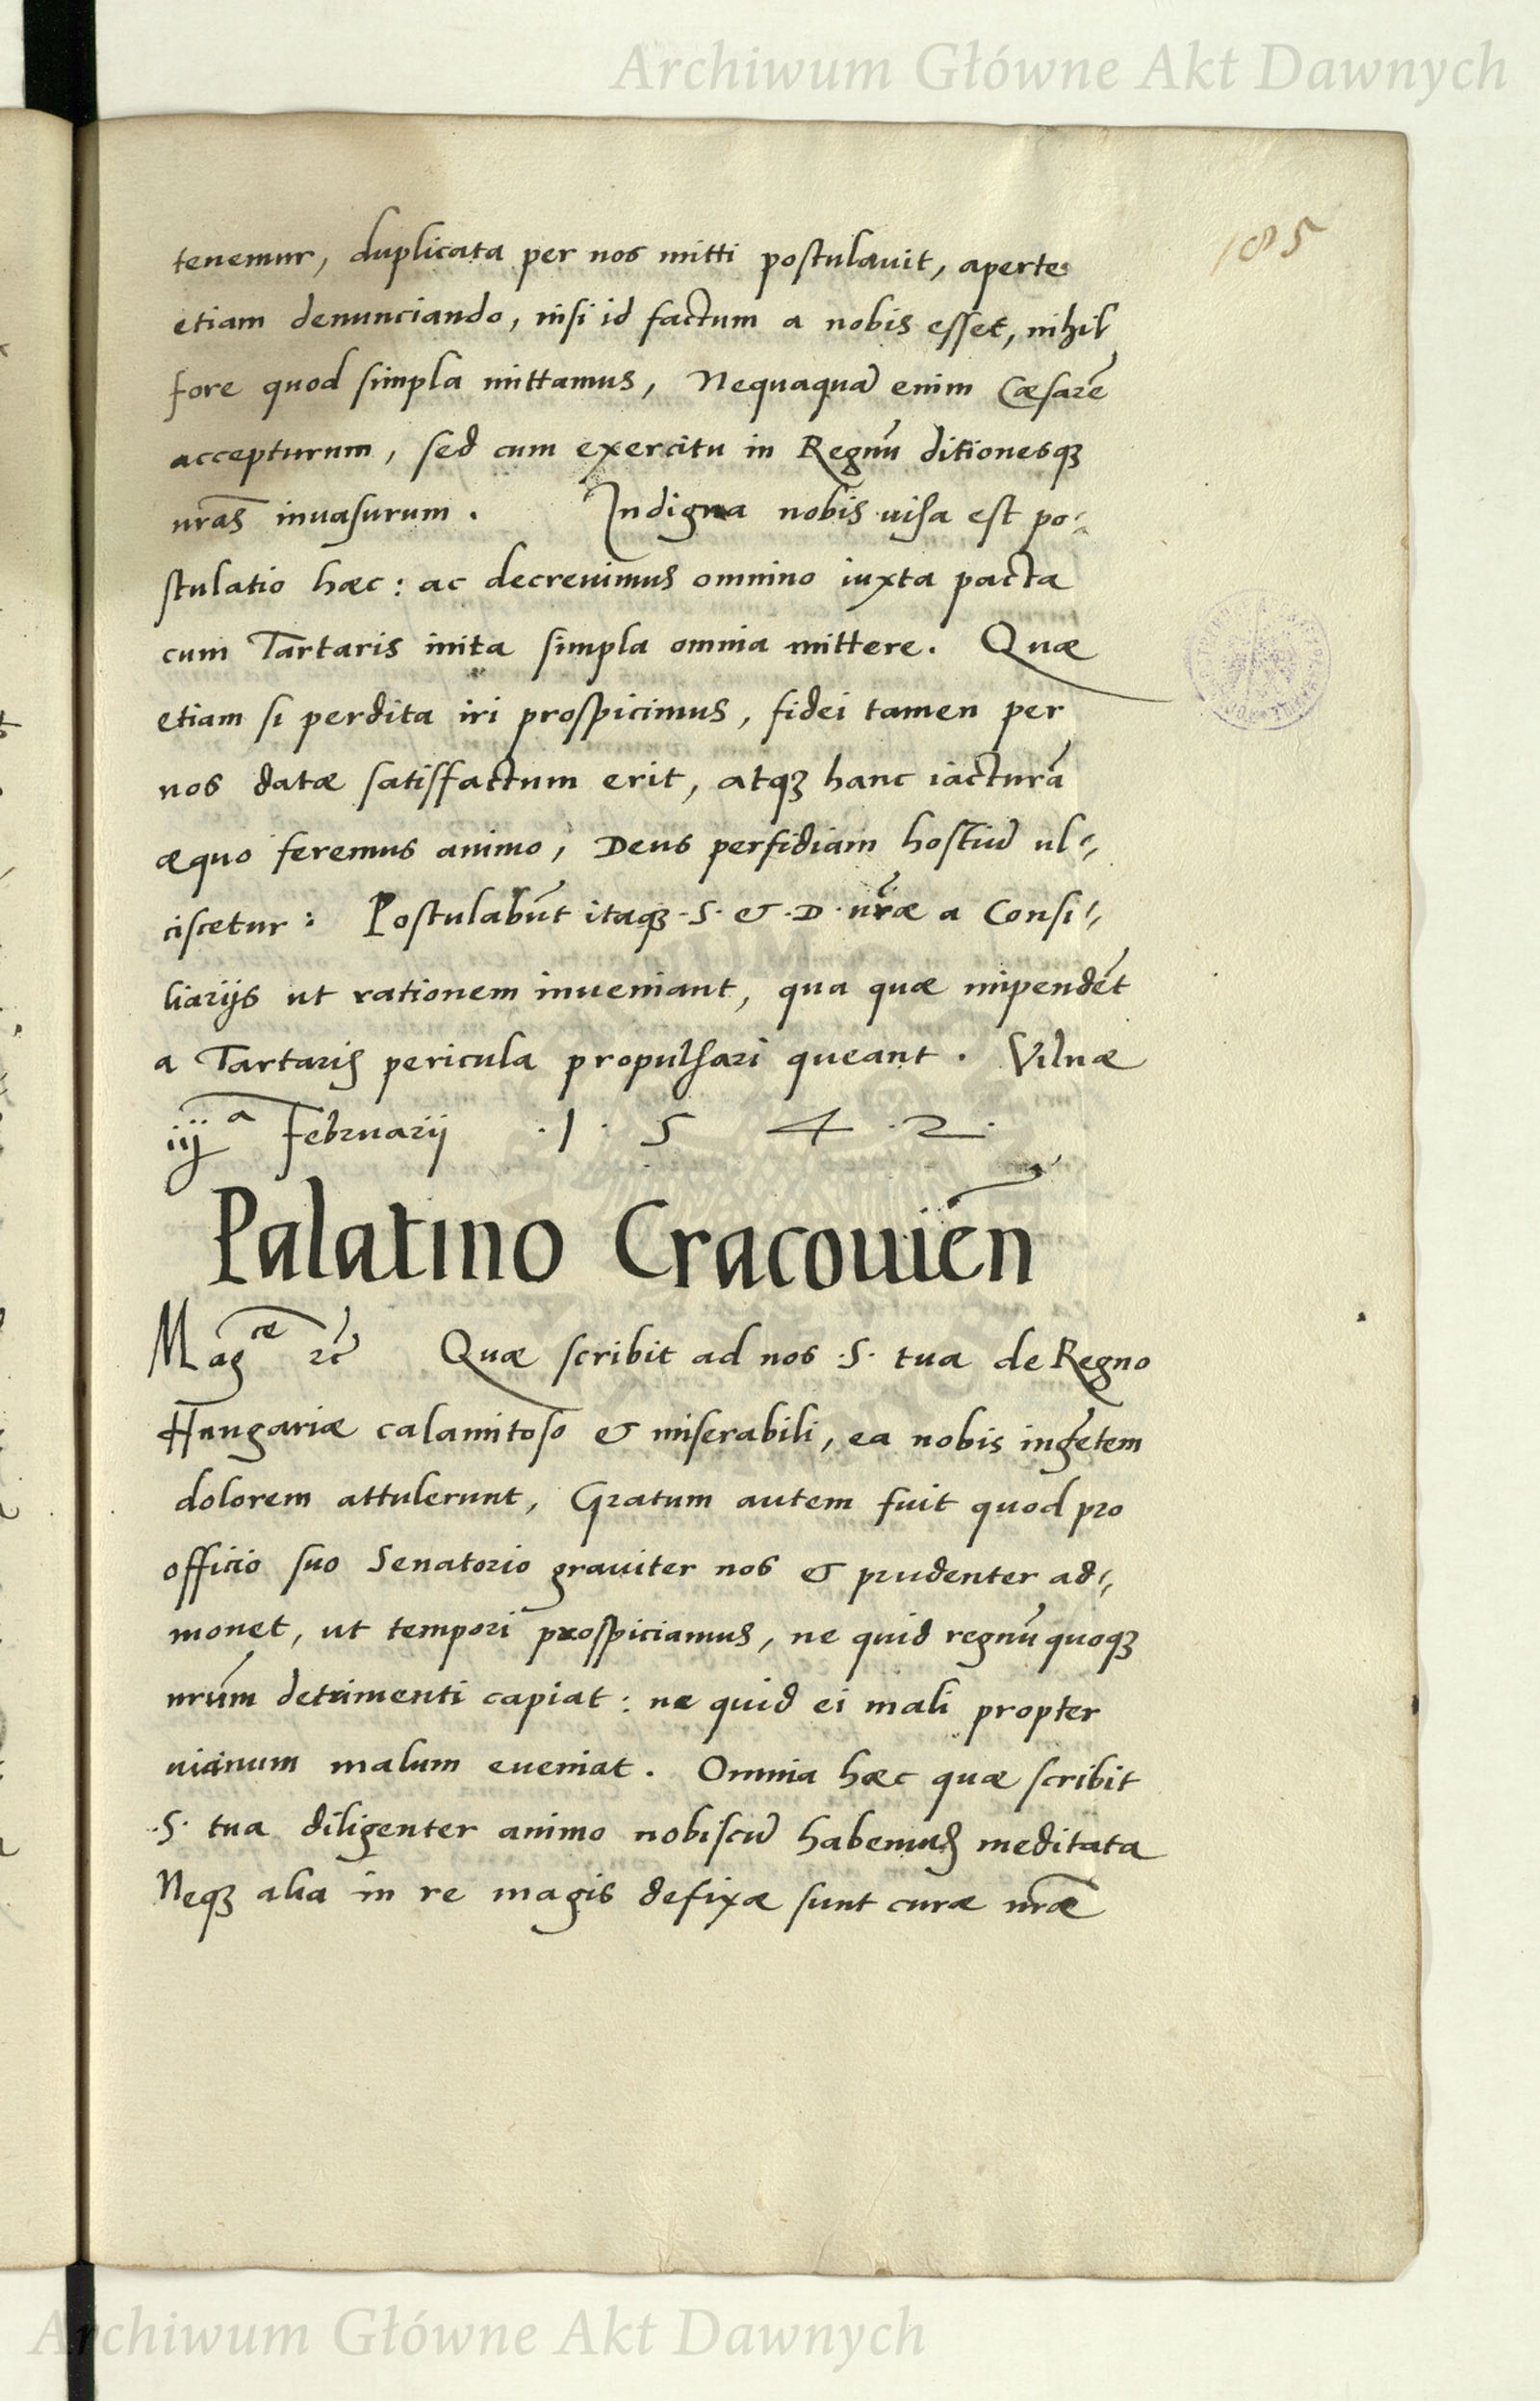 Archiwum Główne Akt Dawnych
185
tenemur, duplicata per nos mitti postulauit, aperte
etiam denunciando, nisi id factum a nobis esset, nihil
fore quod simpla mittamus, Nequaquã enim Cæsarẽ
accepturum, sed cum exercitu in Regnũ ditionesqꝫ
nr̃as inuasurum. Indigna nobis uisa est po⸗
stulatio hæc: ac decreuimus omnino iuxta pacta
cum Tartaris inita simpla omnia mittere. Quæ
etiam si perdita iri prospicimus, fidei tamen per
nos datæ satisfactum erit, atqꝫ hanc iacturã
æquo feremus animo, Deus perfidiam hostiũ ul⸗
ciscetur: Postulabũt itaqꝫ .S. & .D. nr̃æ a Consi⸗
liarijs ut rationem inueniant, qua quæ impendẽt
a Tartaris pericula propulsari queant. Vilnæ
iijª Februarij .1. 5 4 .2.
Palatino Cracouieñ
Magce ꝛc̃ Quæ scribit ad nos .S. tua de Regno
Hungariæ calamitoso & miserabili, ea nobis ingẽtem
dolorem attulerunt, Gratum autem fuit quod pro
officio suo Senatorio grauiter nos & prudenter ad⸗
monet, ut tempori prospiciamus, ne quid regnũ quoqꝫ
nr̃um detrimenti capiat: ne quid ei mali propter
uicinum malum eueniat. Omnia hæc quæ scribit
.S. tua diligenter animo nobiscũ habemus meditata
Neqꝫ alia in re magis defixæ sunt curæ nr̃æ
Archiwum Główne Akt Dawnych